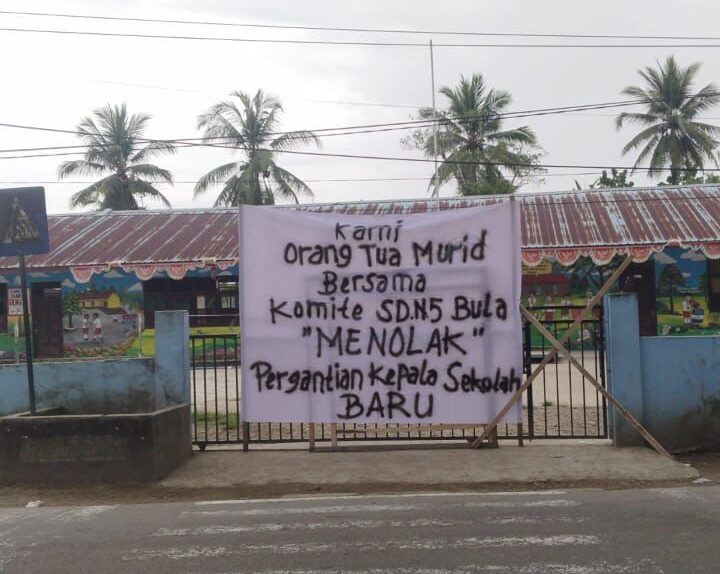 Kami
Orang Tua Murid
Bersama
Komite SD.N.5 Bula
"MENOLAK"
Pergantian Kepala Sekolah
BARU